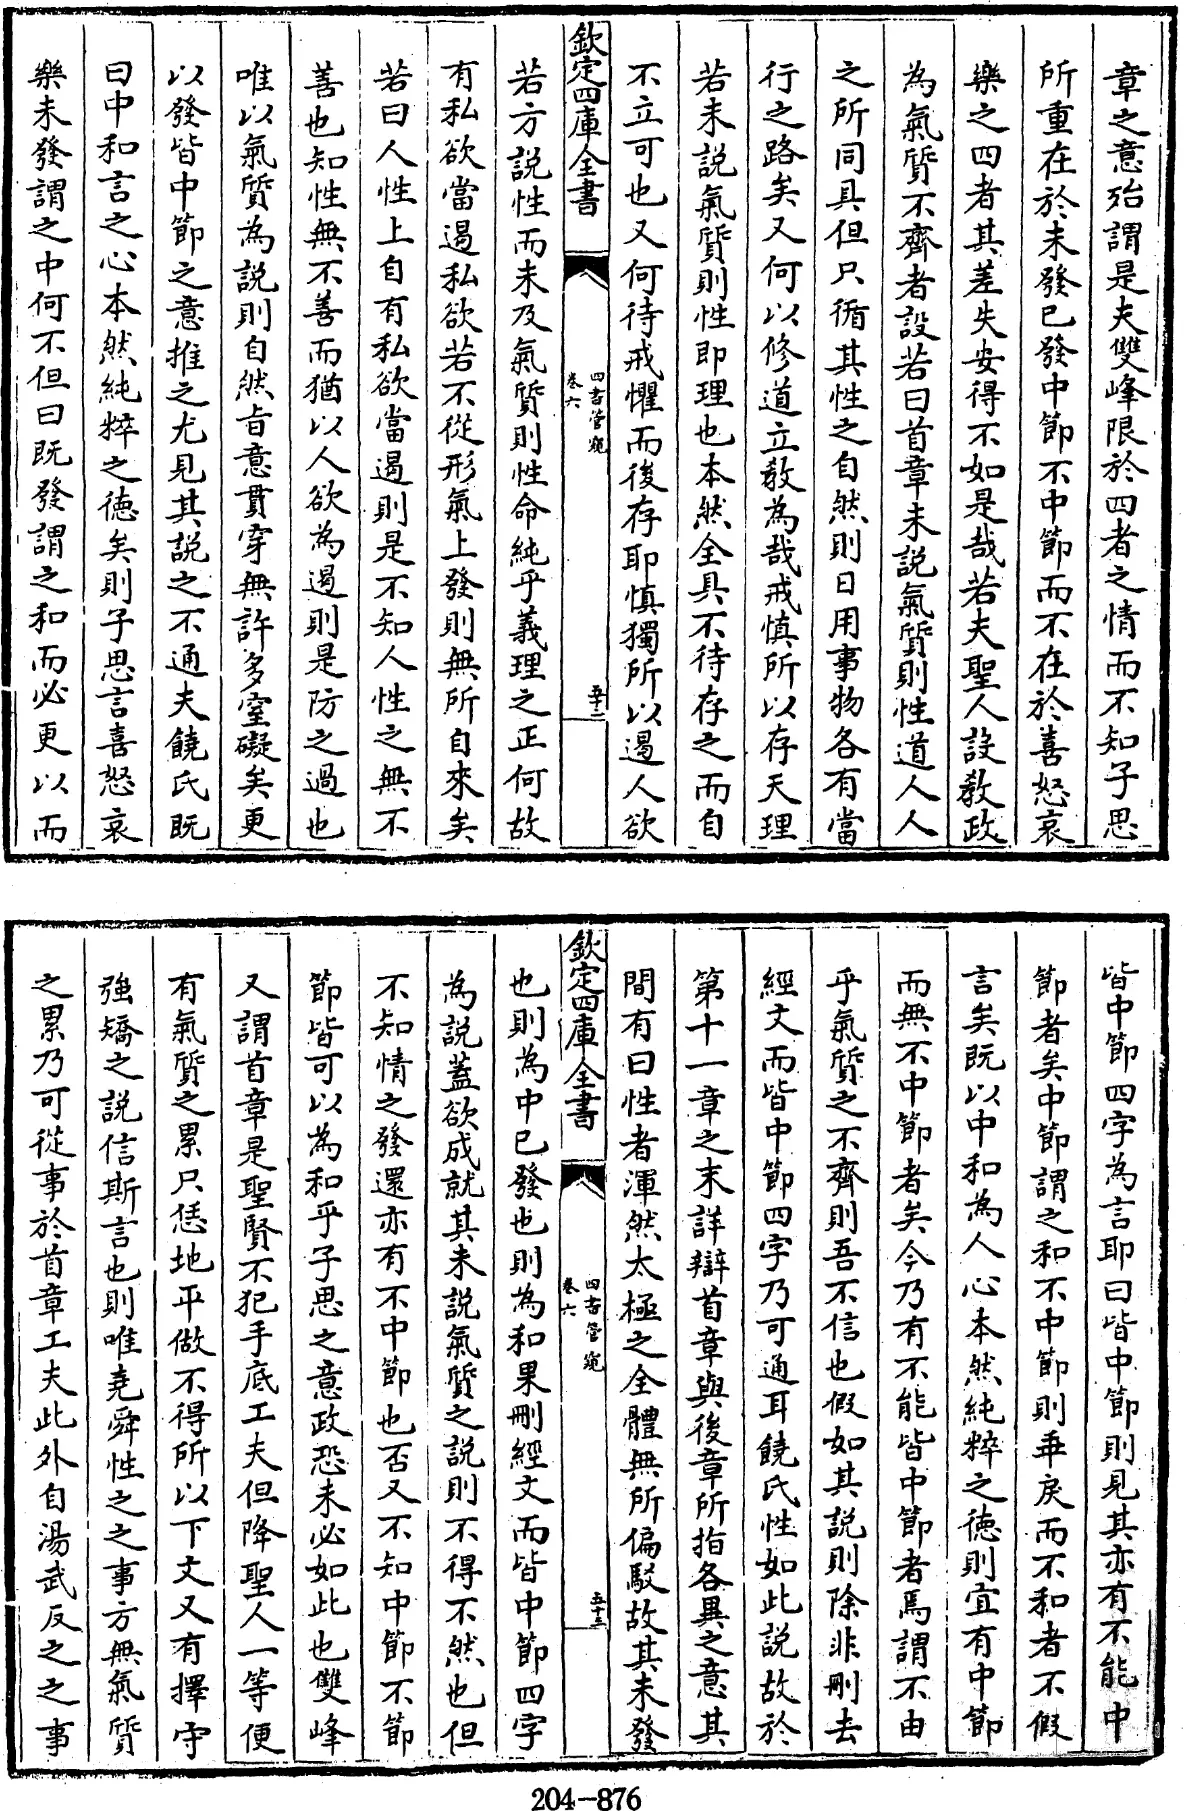 章之意殆謂是夫雙峰限於四者之情而不知子思
所重在於未發已發中節不中節而不在於喜怒哀
樂之四者其差失安得不如是哉若夫聖人設教政
為氣質不齊者設若曰首章未説氣質則性道人人
之所同具但只循其性之自然則日用事物各有當
行之路矣又何以修道立教為哉戒慎所以存天理
若未説氣質則性即理也本然全具不待存之而自
不立可也又何待戒懼而後存耶慎獨所以遏人欲
欽定四庫全書
四書管窺
卷六
五十二
若方説性而未及氣質則性命純乎義理之正何故
有私欲當遏私欲若不從形氣上發則無所自來矣
若曰人性上自有私欲當遏則是不知人性之無不
善也知性無不善而猶以人欲為遏則是防之過也
唯以氣質為説則自然㫖意貫穿無許多窒礙矣更
以發皆中節之意推之尤見其説之不通夫饒氏既
曰中和言之心本然純粹之德矣則子思言喜怒哀
樂未發謂之中何不但曰既發謂之和而必更以而
皆中節四字為言耶曰皆中節則見其亦有不能中
節者矣中節謂之和不中節則乖戾而不和者不假
言矣既以中和為人心本然純粹之德則宜有中節
而無不中節者矣今乃有不能皆中節者焉謂不由
乎氣質之不齊則吾不信也假如其説則除非刪去
經文而皆中節四字乃可通耳饒氏性如此説故於
第十一章之末詳辯首章與後章所指各異之意其
間有曰性者渾然太極之全體無所偏駁故其未發
欽定四庫全書
四書管窺
卷六
五十三
也則為中已發也則為和果刪經文而皆中節四字
為説蓋欲成就其未説氣質之説則不得不然也但
不知情之發還亦有不中節也否又不知中節不節
節皆可以為和乎子思之意政恐未必如此也雙峰
又謂首章是聖賢不犯手底工夫但降聖人一等便
有氣質之累只恁地平做不得所以下文又有擇守
強矯之説信斯言也則唯堯舜性之之事方無氣質
之累乃可從事於首章工夫此外自湯武反之之事
204-876